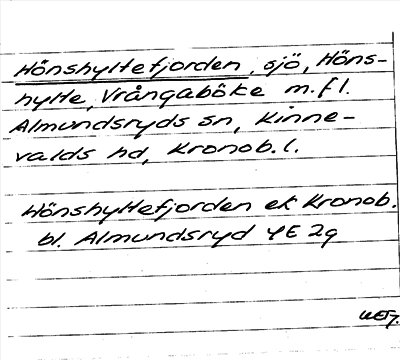 Hönshyltefjorden, sjö, Höns-
hylte, Vrångaböke m.fl.
Almundsryds sn, Kinne-
valds hd, Kronob.l.
Hönshyltefjorden ek Kronob.
bl. Almundsryd 4E 2g